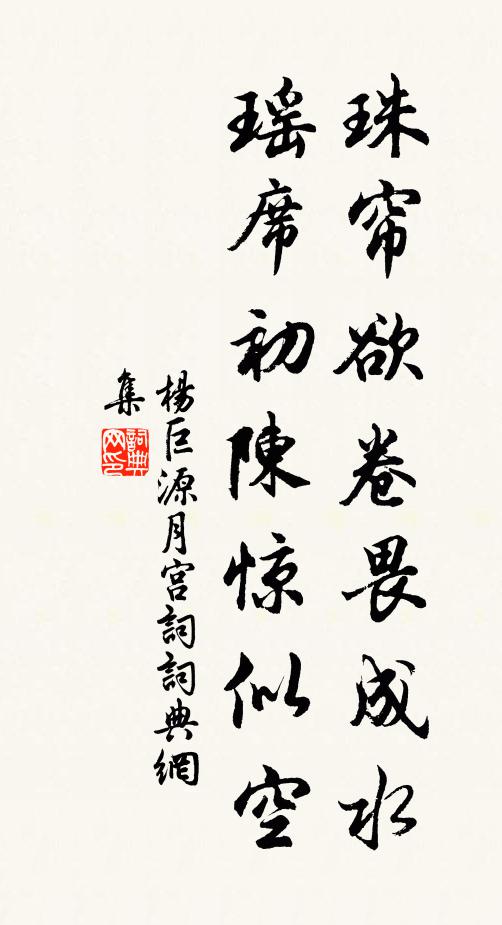 珠帘欲卷畏成水
瑶席初陳惊似空
楊巨源月宫詞詞典網
集
詞典网印